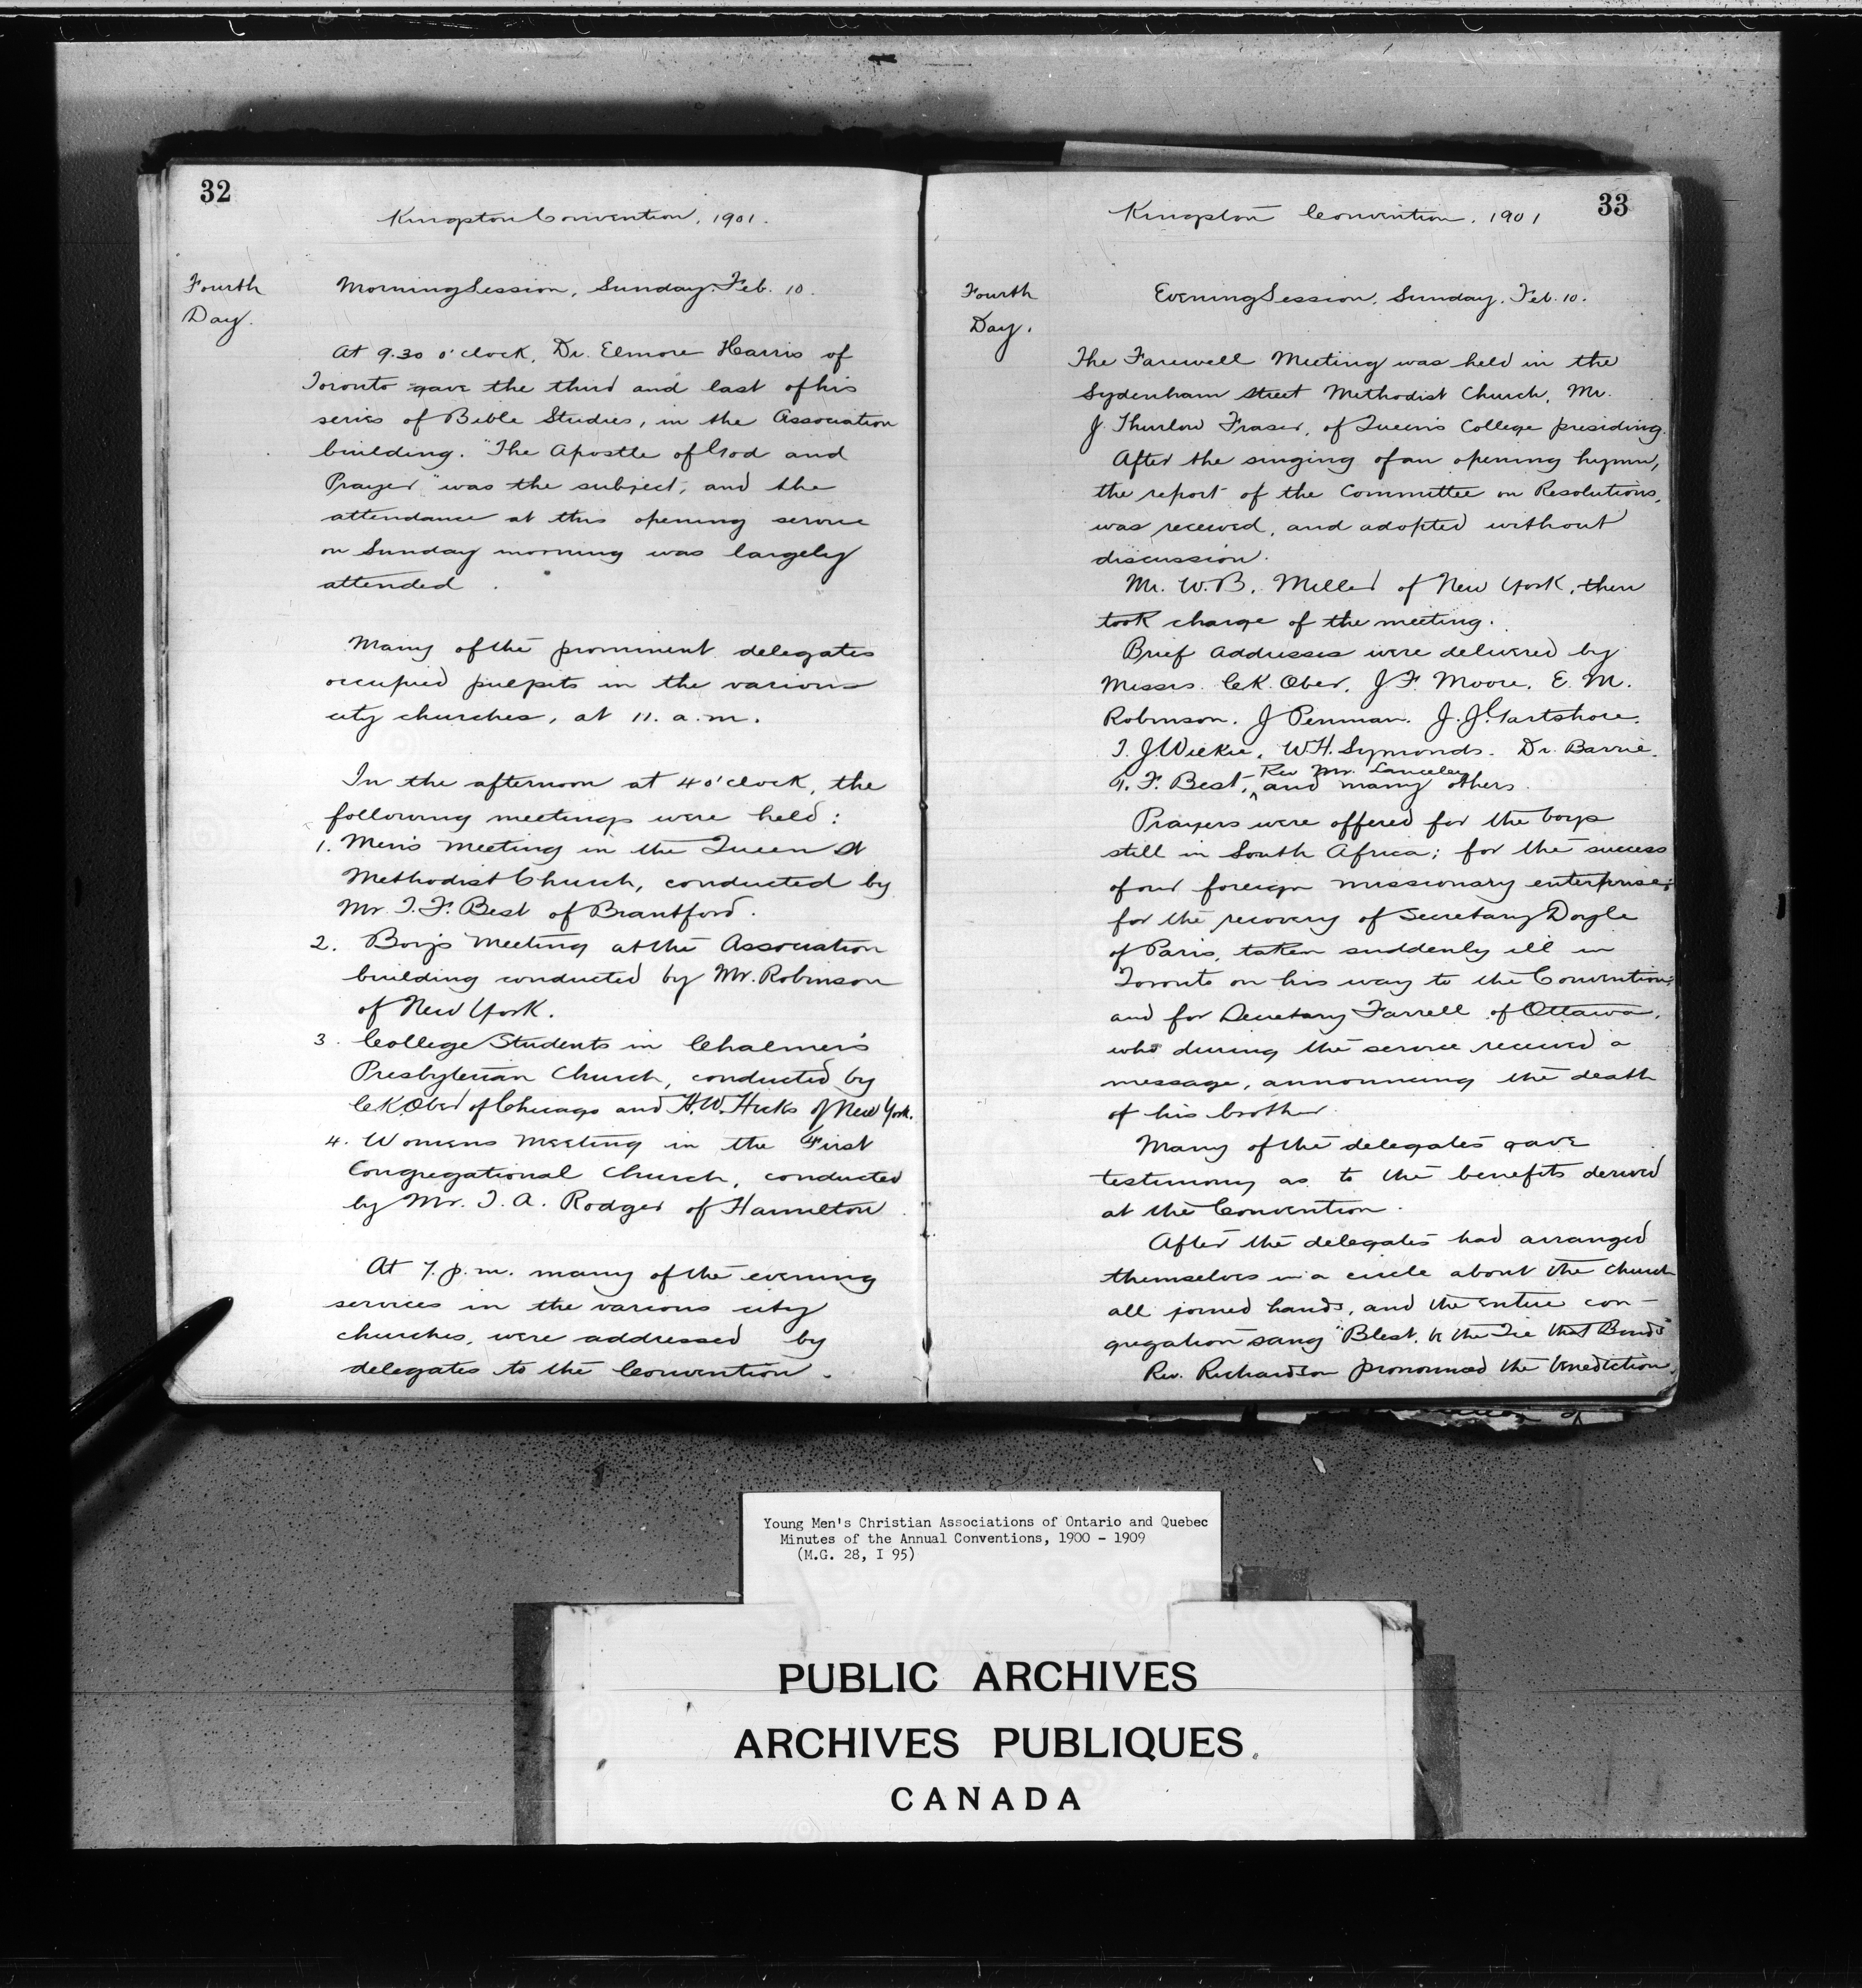 32
Kingston Convention, 1901.
Fourth
Day.
Morning Session, Sunday, Feb. 10.
At 9.30 o'clock, Dr. Elmore Harris of
Toronto gave the third and last of his
series of Bible Studies, in the Association
building. "The Apostle of God and
Prayer" was the subject, and the
attendance at this opening service
on Sunday morning was largely
attended.
Many of the prominent delegates
occupied pulpits in the various
city churches, at 11. a.m.
In the afternoon at 4 o'clock, the
following meetings were held:
1. Men's Meeting in the Queen St
Methodist Church, conducted by
Mr. T. F. Best of Brantford.
2. Boy's Meeting at the Association
building conducted by Mr. Robinson
of New York.
3. College Students in Chalmer's
Presbyterian Church, conducted by
C K Ober of Chicago and H. W. Hicks of New York.
4. Womens Meeting in the First
Congregational Church, conducted
by Mr. T. A. Rodger of Hamilton.
At 7. p.m. many of the evening
services in the various city
churches, were addressed by
delegates to the Convention.
33
Kingston Convention, 1901
Fourth
Day.
Evening Session, Sunday, Feb. 10.
The Farewell Meeting was held in the
Sydenham Street Methodist Church, Mr.
J. Thurlow Fraser, of Queen's College presiding.
After the singing of an opening hymn,
the report of the Committee on Resolutions,
was received, and adopted without
discussion.
Mr. W. B. Miller of New York, then
took charge of the meeting.
Brief Addresses were delivered by
Messrs. C K. Ober, J F. Moore, E. M.
Robinson. J Penman. J. J. Gartshore.
T. J Wilkie, W. H. Symonds. Dr. Barrie.
T. F. Best, Rev Mr. Lanceley and many others.
Prayers were offered for the boys
still in South Africa; for the success
of our foreign missionary enterprise;
for the recovery of Secretary Doyle
of Paris, taken suddenly ill in
Toronto on his way to the Convention;
and for Secretary Farrell of Ottawa,
who during the service received a
message, announcing the death
of his brother.
Many of the delegates gave
testimony as to the benefits derived
at the Convention.
After the delegates had arranged
themselves in a circle about the church
all joined hands, and the entire con-
gregation sang "Blest be the Tie that Binds"
Rev. Richardson pronounced the benediction.
Young Men's Christian Associations of Ontario and Quebec
Minutes of the Annual Conventions, 1900 - 1909
(M.G. 28, I 95)
PUBLIC ARCHIVES
ARCHIVES PUBLIQUES
CANADA